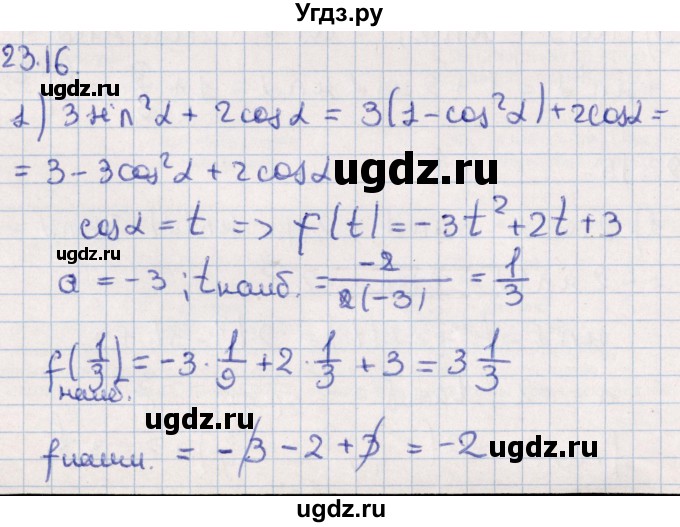 Угдз.ру
23.16
1) 3sin²α + 2cosα = 3(1-cos²α)+2cosα =
= 3-3cos²α + 2cosα
ugdz.ru
cosα = t => f(t) = -3t²+2t+3
ugdz.ru
a = -3; tнаиб. = -2/2(-3) = 1/3
ugdz.ru
f(1/3) = -3·1/9 + 2·1/3 + 3 = 3 1/3
наиб.
ugdz.ru
fнаим. = -3 - 2 + 3 = -2
ugdz.ru
ugdz.ru